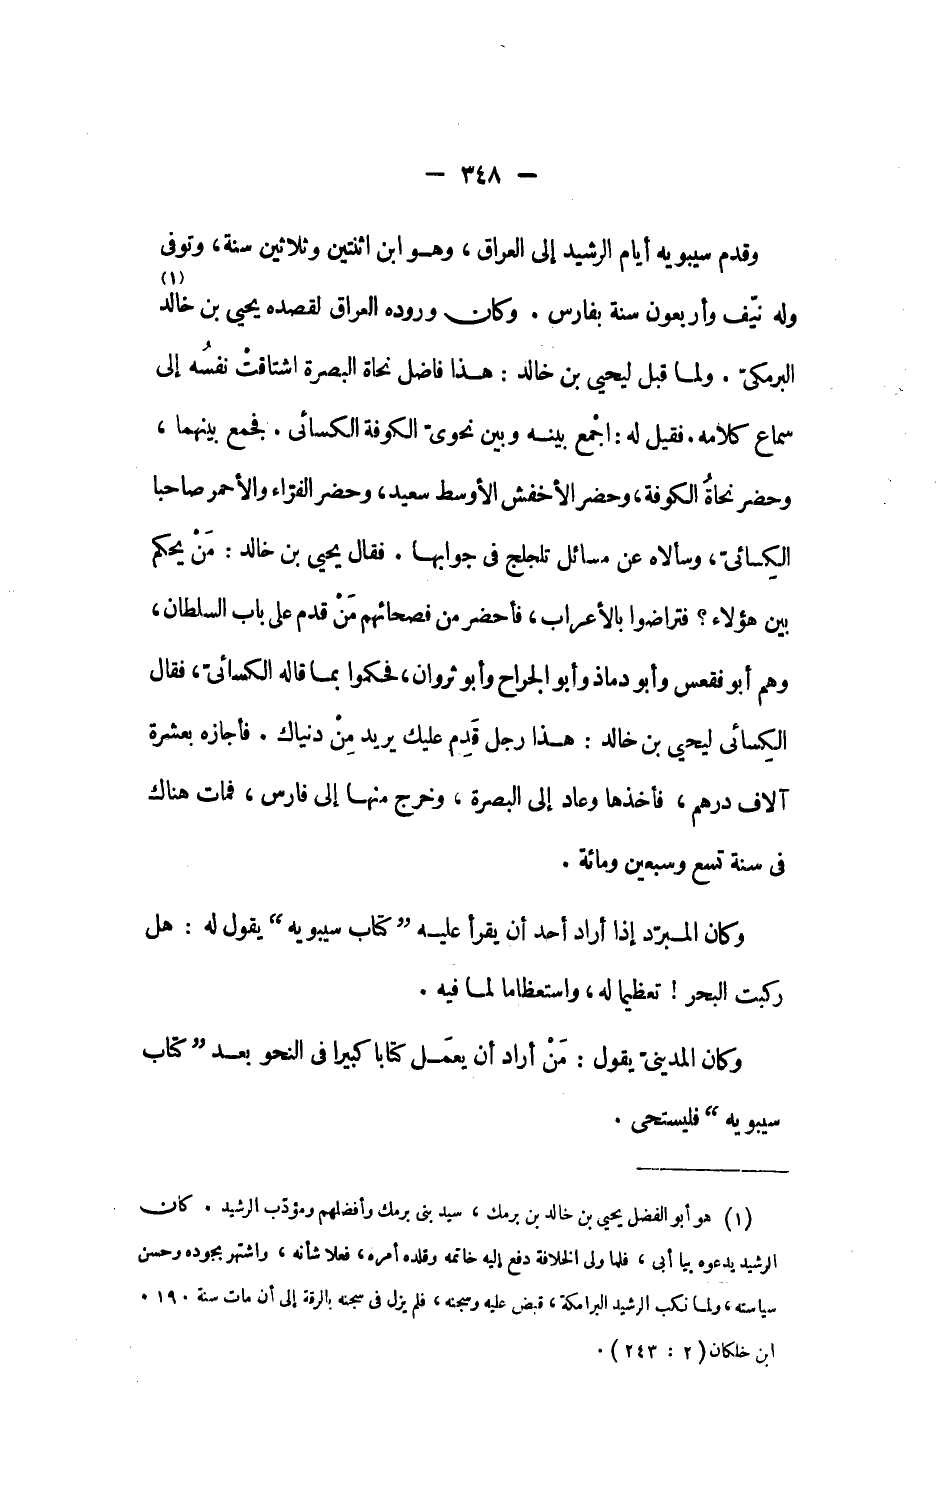 — ٣٤٨ —
وقدم سيبويه أيام الرشيد إلى العراق ، وهو ابن اثنتين وثلاثين سنة ، وتوفى
وله نيّف وأربعون سنة بفارس . وكان وروده العراق لقصده يحيى بن خالد (١)
البرمكىّ . ولما قيل ليحيى بن خالد : هذا فاضل نحاة البصرة اشتاقتْ نفسُه إلى
سماع كلامه . فقيل له : اجْمع بينه وبين نحوىّ الكوفة الكسائى . فجمع بينهما ،
وحضر نحاةُ الكوفة ، وحضر الأخفش الأوسط سعيد ، وحضر الفرّاء والأحمر صاحبا
الكِسائىّ ، وسألاه عن مسائل تلجلج فى جوابها . فقال يحيى بن خالد : مَنْ يحكم
بين هؤلاء ؟ فتراضوا بالأعراب ، فأحضر من فصحائهم مَنْ قدم على باب السلطان ،
وهم أبو فقعس وأبو دماذ وأبو الجراح وأبو ثروان ، فحكموا بما قاله الكسائىّ ، فقال
الكِسائى ليحيى بن خالد : هذا رجل قَدِم عليك يريد مِنْ دنياك . فأجازه بعشرة
آلاف درهم ، فأخذها وعاد إلى البصرة ، وخرج منها إلى فارس ، فمات هناك
فى سنة تسع وسبعين ومائة .
وكان المبرّد إذا أراد أحد أن يقرأ عليه ”كتاب سيبويه“ يقول له : هل
ركبت البحر ! تعظيما له ، واستعظاما لما فيه .
وكان المدينىّ يقول : مَنْ أراد أن يعمَل كتابا كبيرا فى النحو بعد ”كتاب
سيبويه“ فليستحى .
(١) هو أبو الفضل يحيى بن خالد بن برمك ، سيد بنى برمك وأفضلهم ومؤدّب الرشيد . كان
الرشيد يدعوه بيا أبى ، فلما ولى الخلافة دفع إليه خاتمه وقلده أمره ، فعلا شأنه ، واشتهر بجوده وحسن
سياسته ، ولما نكب الرشيد البرامكة ، قبض عليه وسجنه ، فلم يزل فى سجنه بالرقة إلى أن مات سنة ١٩٠ .
ابن خلكان (٢ : ٢٤٣) .